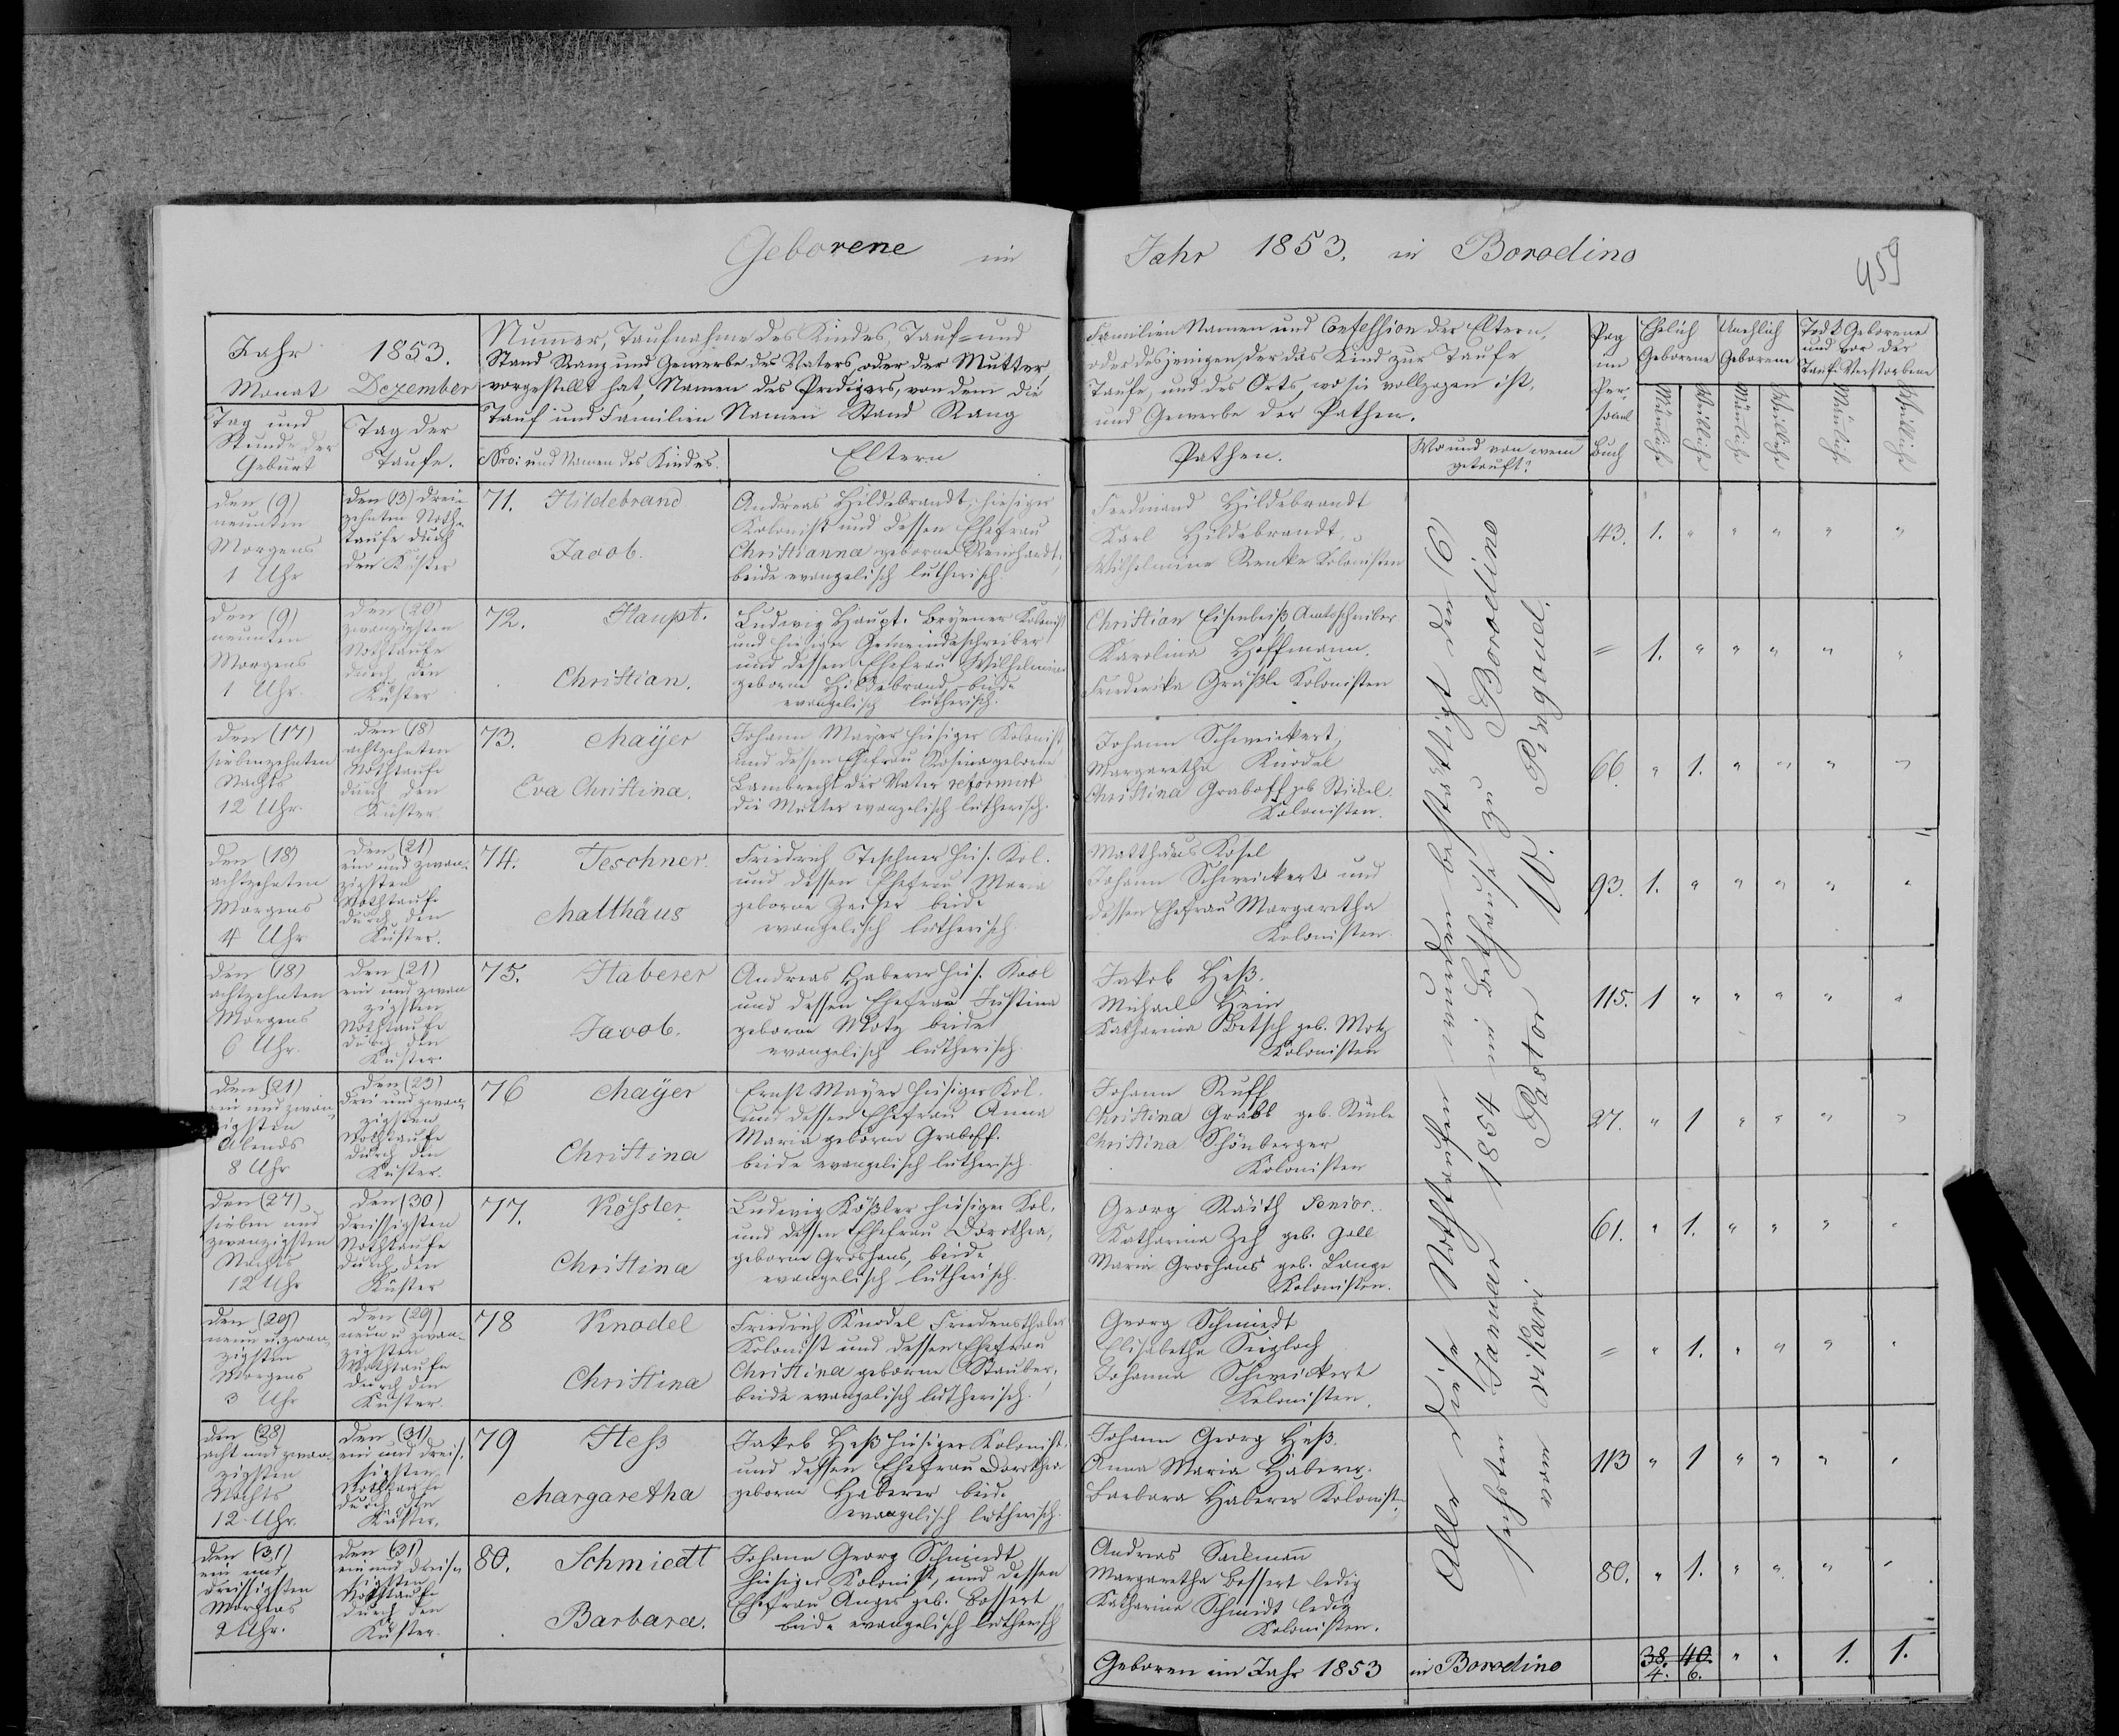 Geborene im Jahr 1853. in Borodino
459
Jahr 1853.
Monat Dezember
Nummer, Taufnahme des Kindes, Tauf- und
Stand Rang und Gewerbe des Vaters, oder der Mutter,
vorgestellt hat, Namen des Predigers, von dem die
Tauf und Familien Namen Stand Rang
Familien Namen und Confession der Eltern,
oder desjenigen, der das Kind zur Taufe
Taufe, und des Orts, wo sie vollzogen ist,
und Gewerbe der Pathen.
Pag
im
Per-
sonal
Buch
Ehelich
Geborene
Unehlich
Geborene
Todt Geborene
und vor der
Taufe Verstorbene
Mänliche
Weibliche
Mänliche
Weibliche
Mänliche
Weibliche
Tag und
Stunde der
Geburt
Tag der
Taufe.
Nro: und Namen des Kindes.
Eltern
Pathen.
Wo und von wem
getauft?
den (9)
neunten
Morgens
1 Uhr
den (13) drei-
zehnten Noth-
taufe durch
den Küster
71. Hildebrand
Jacob.
Andreas Hildebrandt, hiesiger
Kolonist und dessen Ehefrau
Christianna geborne Reinhardt,
beide evangelisch lutherisch.
Ferdinand Hildebrandt
Karl Hildebrandt
Wilhelmine Renke Kolonisten
43. 1. " " " " "
den (9)
neunten
Morgens
1 Uhr.
den (20)
zwanzigsten
Nothtaufe
durch den
Küster
72. Haupt.
Christian.
Ludwig Haupt. Kolonist
und hiesiger Gemeindeschreiber
und dessen Ehefrau Wilhelmine
geborne Hildebrand, beide
evangelisch lutherisch.
Christian Eisenbeiß, Amtsschreiber
Karolina Hoffmann.
Friederika Gräßle Kolonisten
= 1. " " " " "
den (17)
siebenzehnten
Nachts
12 Uhr.
den (18)
achtzehnten
Nothtaufe
durch den
Küster
73. Mayer
Eva Christina.
Johann Mayer hiesiger Kolonist
und dessen Ehefrau Rosina geborne
Lambrecht der Vater reformirt
die Mutter evangelisch lutherisch.
Johann Schweickert,
Margaretha Knodel
Christina Graboff geb Stickel.
Kolonisten.
66. " 1. " " " "
den (18)
achtzehnten
Morgens
4 Uhr
den (21)
ein und zwan-
zigsten
Nothtaufe
durch den
Küster.
74. Teschner.
Matthäus
Friedrich Teschner hies. Kol.
und dessen Ehefrau Maria
geborne Zeiser beide
evangelisch lutherisch.
Matthäus Kosel
Johann Schweickert und
dessen Ehefrau Margaretha
Kolonisten.
93. 1. " " " " "
den (18)
achtzehnten
Morgens
6 Uhr.
den (21)
ein und zwan
zigsten
Nothtaufe
durch den
Küster.
75. Haberer
Jacob.
Andreas Haberer hies. Kool
und dessen Ehefrau Justina
geborne Motz beide
evangelisch lutherisch.
Jakob Heß.
Michael Hein
Katharina Betsch geb. Motz
Kolonisten
115. 1 " " " " "
den (21)
ein und zwan-
zigsten
Abends
8 Uhr
den (23)
drei und zwan-
zigsten
Nothtaufe
durch den
Küster.
76 Mayer
Christina
Ernst Mayer hiesiger Kol.
und dessen Ehefrau Anna
Maria geborne Graboff.
beide evangelisch lutherisch.
Johann Ruff
Christina Grabl geb.
Christina Schönberger
Kolonisten
27. " 1 " " " "
den (27)
sieben und
zwanzigsten
Nachts
12 Uhr
den (30)
dreissigsten
Nothtaufe
durch den
Küster
77. Kößler
Christina
Ludwig Kößler hiesiger Kol.
und dessen Ehefrau Dorothea,
geborne Groshans, beide
evangelisch lutherisch.
Georg Räith Senior.
Katharina Zeh geb. Goll
Maria Groshans geb. Lange
Kolonisten.
61. " 1. " " " "
den (29)
neun u. zwan-
zigsten
Morgens
3 Uhr
den (29)
neun u zwan-
zigsten
Nothtaufe
durch den
Küster.
78 Knodel
Christina
Friedrich Knodel Friedensthaler
Kolonist und dessen Ehefrau
Christina geborne Stauber,
beide evangelisch lutherisch.
Georg Schmiedt
Elisabetha Siegloch
Johanna Schweickert
Kolonisten.
= " 1. " " " "
den (28)
acht und zwan-
zigsten
Nachts
12 Uhr.
den (31)
ein und dreis-
sigsten
Nothtaufe
durch den
Küster.
79 Heß
Margaretha
Jakob Heß hiesiger Kolonist.
und dessen Ehefrau Dorothea
geborne Haberer beide
evangelisch lutherisch.
Johann Georg Heß.
Anna Maria Haberer.
Barbara Haberer Kolonist.
113 " 1 " " " "
den (31)
ein und
dreissigsten
Morgens
2 Uhr.
den (31)
ein und dreis-
sigsten
Nothtaufe
durch den
Küster.
80. Schmiedt
Barbara.
Johann Georg Schmiedt
hiesiger Kolonist, und dessen
Ehefrau Anges geb. Bossert
beide evangelisch lutherisch
Andreas Sackmann
Margaretha Bossert ledig
Katharina Schmidt ledig
Kolonisten.
80. " 1. " " " "
Alle diese Nothtaufen wurden bestättigt den (6)
sechsten Januar 1854 im Bethause zu Borodino
vom vikari Pastor W. Pingoud.
Geboren im Jahr 1853 in Borodino
38. 40. " " 1. 1.
4. 6.